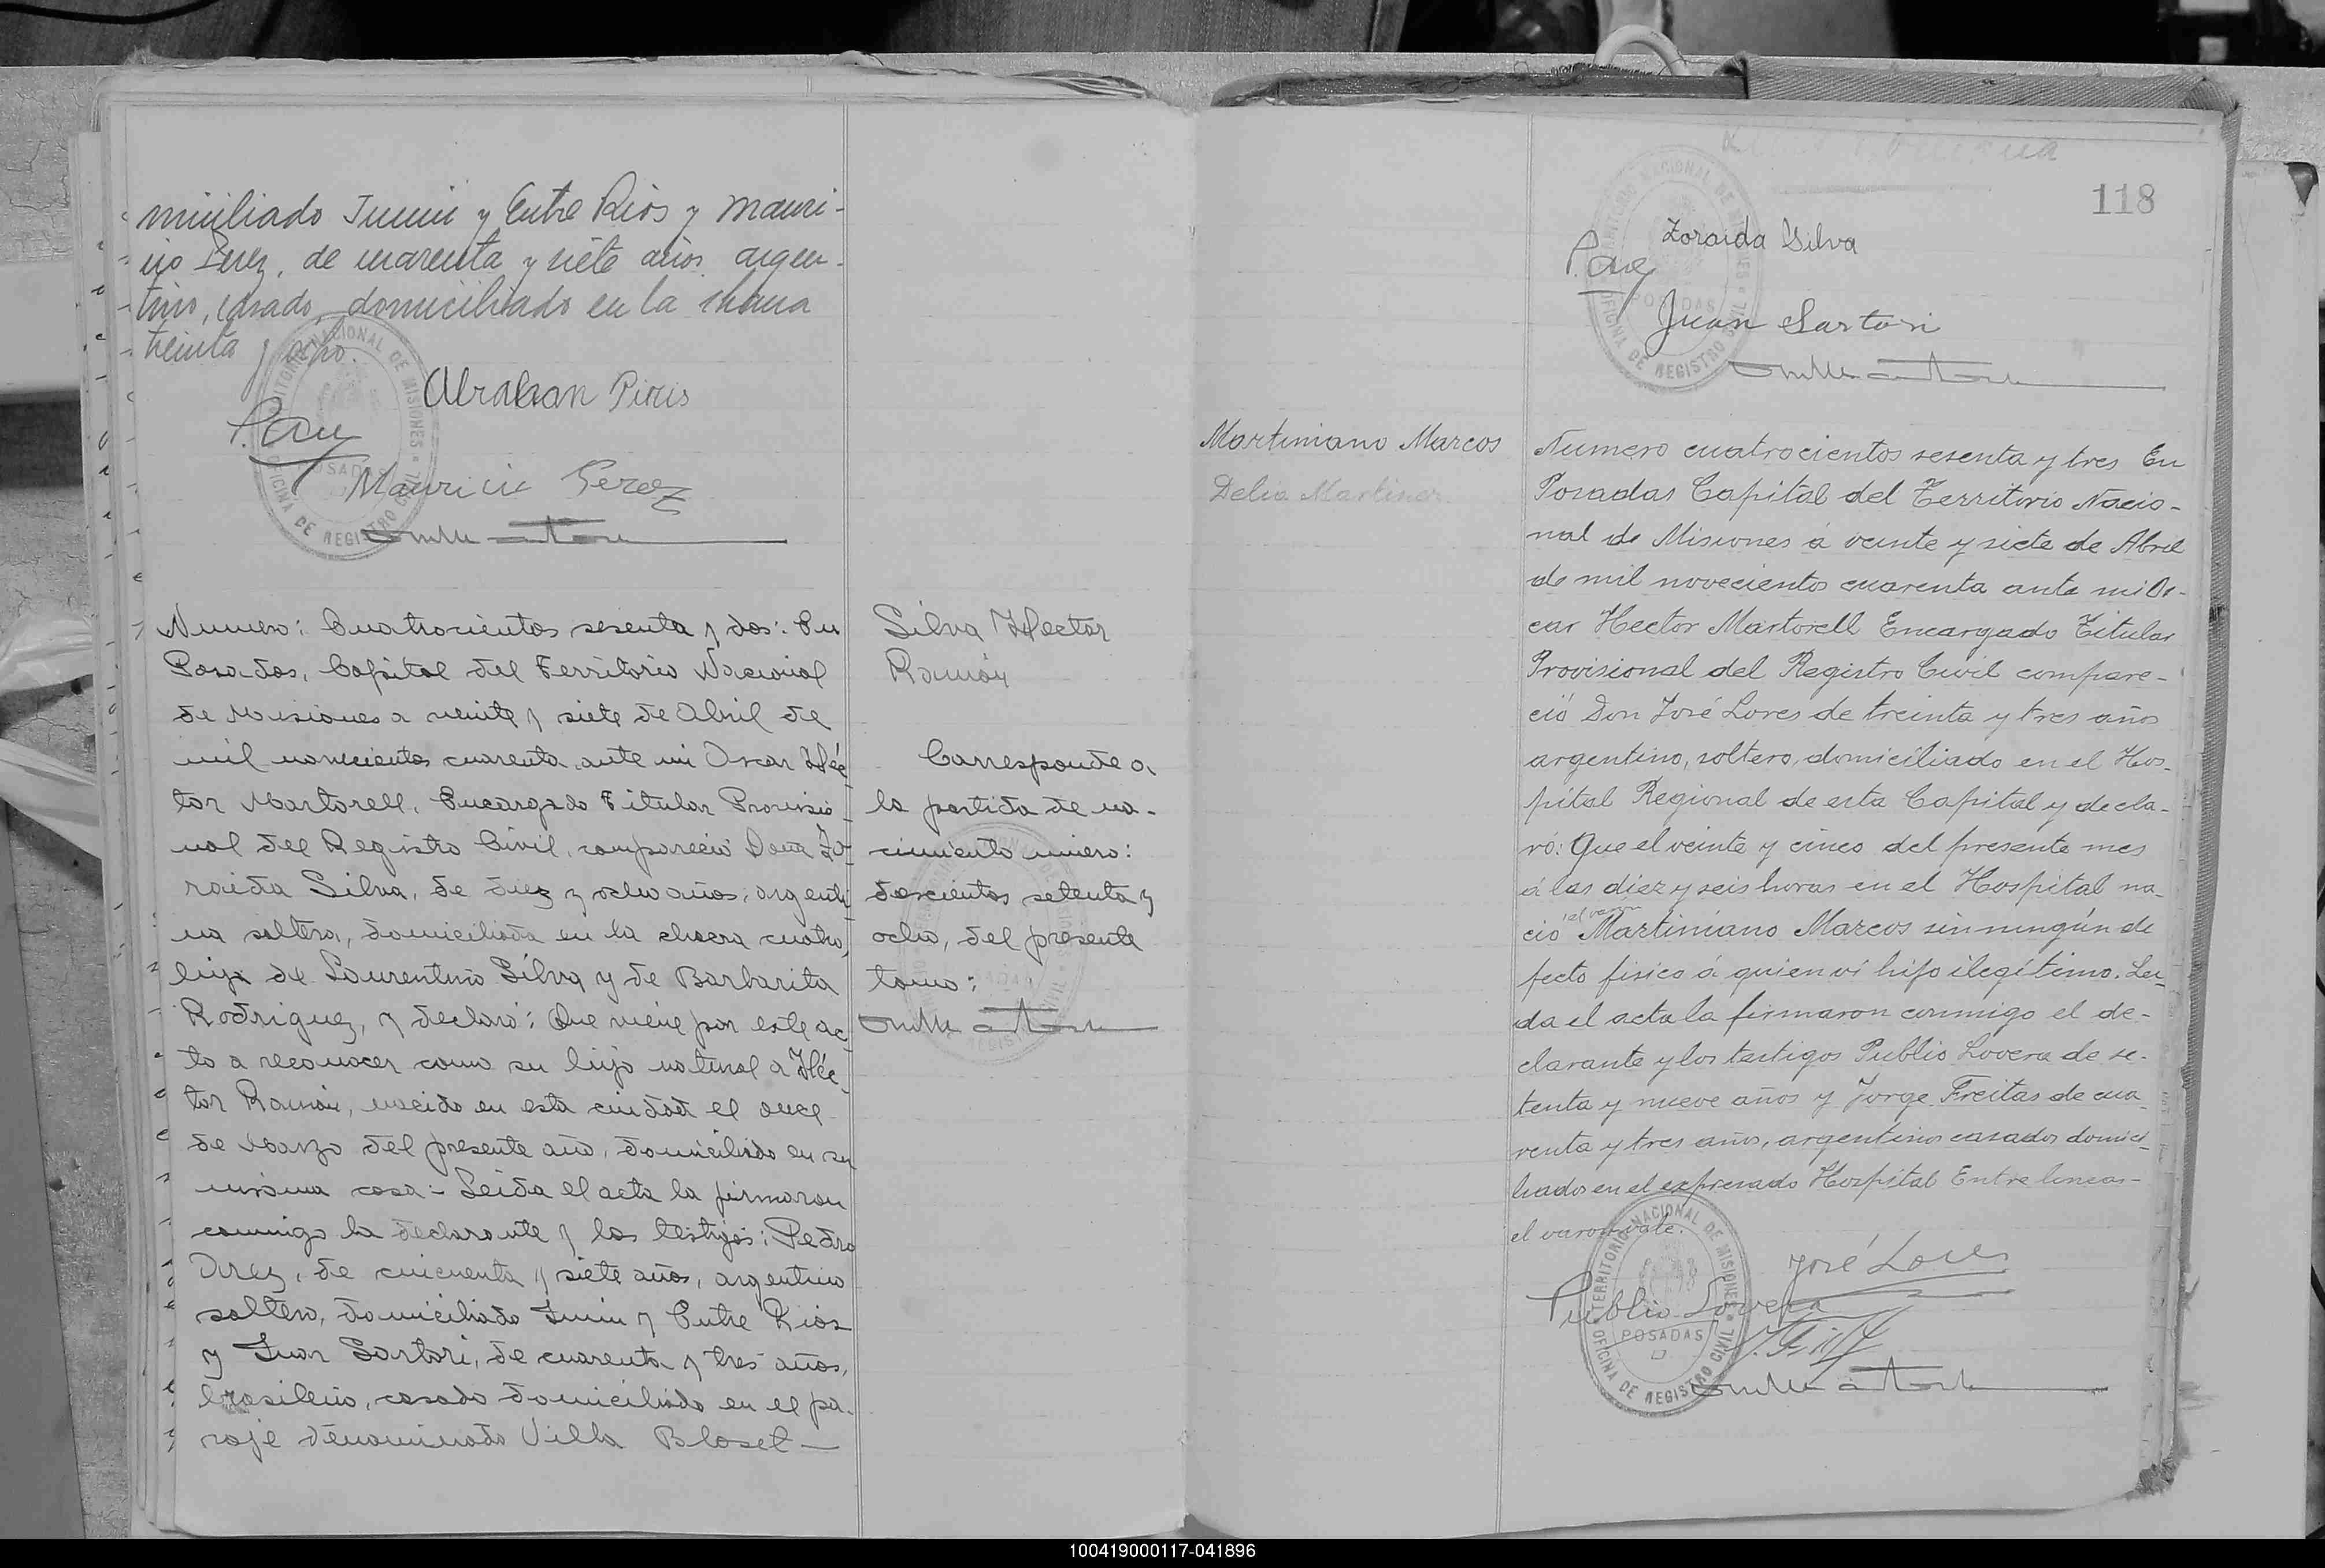 miciliado Junin y Entre Rios y Mauri-
cio Perez, de cuarenta y siete años, argen-
tino, casado, domiciliado en la chacra
treinta y ocho.
Abrahan Piris
P. Arez
Mauricio Perez
TERRITORIO NACIONAL DE MISIONES
POSADAS
OFICINA DE REGISTRO CIVIL
Numero: Cuatrocientos sesenta y dos: En
Posadas, Capital del Territorio Nacional
de Misiones a veinte y siete de Abril de
mil novecientos cuarenta, ante mi Oscar Héc
tor Martorell, Encargado Titular Provisio-
nal del Registro Civil, compareció Doña Zo-
raida Silva, de diez y ocho años, argenti
na soltera, domiciliada en la chacra cuatro,
hija de Laurentino Silva y de Barbarita
Rodriguez, y declaró: Que viene por este ac
to a reconocer como su hijo natural a Héc-
tor Ramón, nacido en esta ciudad el once
de Marzo del presente año, domiciliado en su
misma casa:- Leida el acta la firmaron
conmigo la declarante y los testigos: Pedro
Arez, de cincuenta y siete años, argentino
soltero, domiciliado Junin y Entre Rios
y Juan Sartori, de cuarenta y tres años,
brasileño, casado domiciliado en el pa-
raje denominado Villa Blosel-
Silva Hector
Ramón
Corresponde a
la partida de na-
cimiento número:
doscientos setenta y
ocho, del presente
tomo:
118
Zoraida Silva
P. Arez
Juan Sartori
TERRITORIO NACIONAL DE MISIONES
POSADAS
OFICINA DE REGISTRO CIVIL
Martiniano Marcos
Delio Martinez
Numero cuatrocientos sesenta y tres En
Posadas Capital del Territorio Nacio-
nal de Misiones á veinte y siete de Abril
de mil novecientos cuarenta ante mi Os-
car Hector Martorell Encargado Titular
Provisional del Registro Civil compare-
ció Don José Lores de treinta y tres años
argentino, soltero, domiciliado en el Hos-
pital Regional de esta Capital y decla-
ró: Que el veinte y cinco del presente mes
á las diez y seis horas en el Hospital na-
ció el varon Martiniano Marcos sin ningún de
fecto fisico á quien ví hijo ilegítimo. Lei-
da el acta la firmaron conmigo el de-
clarante y los testigos Publio Lovera de se-
tenta y nueve años y Jorge Freitas de cua-
renta y tres años, argentinos casados domici-
liados en el expresado Hospital Entre lineas-
el varon-vale.
José Lores
Publio Lovera
TERRITORIO NACIONAL DE MISIONES
POSADAS
OFICINA DE REGISTRO CIVIL
100419000117-041896